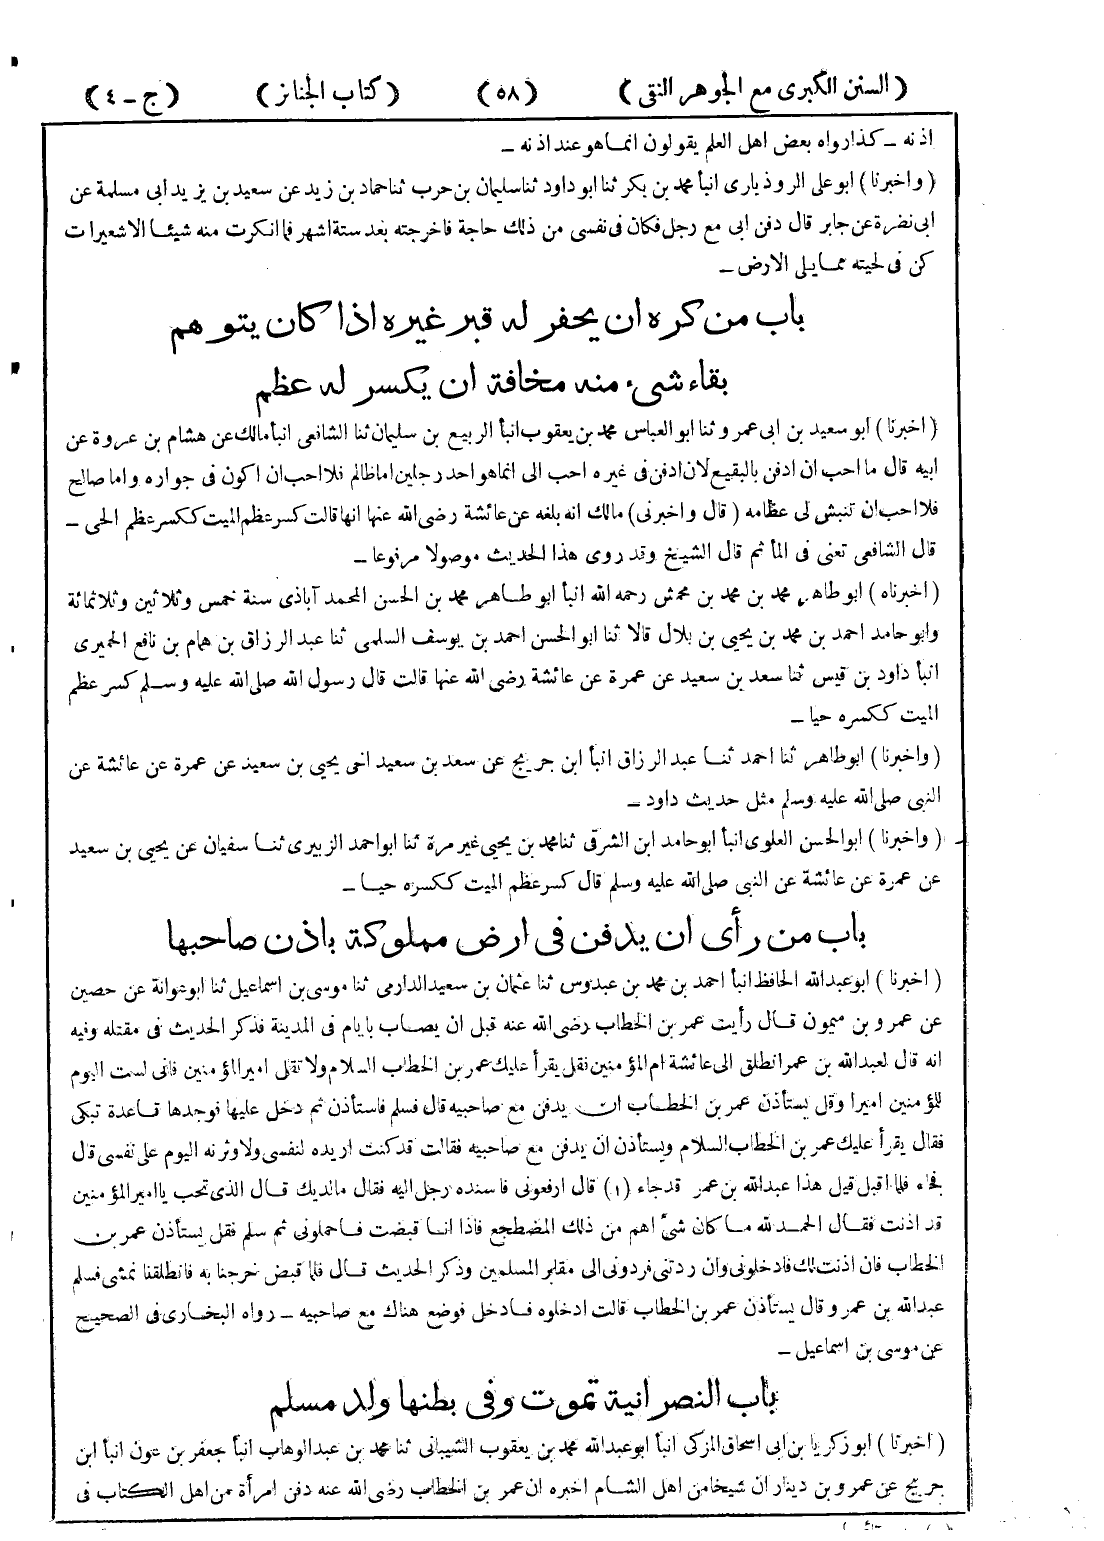 ( السنن الكبرى مع الجوهر النقى ) ( ٥٨ ) ( كتاب الجنائز ) ( ج ـ ٤ )
اذنه ـ كذا رواه بعض اهل العلم يقولون انما هو عند اذنه ـ
( واخبرنا ) ابو على الروذبارى انبأ محمد بن بكر ثنا ابو داود ثنا سليمان بن حرب ثنا حماد بن زيد عن سعيد بن يزيد ابى مسلمة عن
ابى نضرة عن جابر قال دفن ابى مع رجل فكان فى نفسى من ذلك حاجة فاخرجته بعد ستة اشهر فما انكرت منه شيئا الا شعيرات
كن فى لحيته مما يلى الارض ـ
باب من كره ان يحفر له قبر غيره اذا كان يتوهم
بقاء شىء منه مخافة ان يكسر له عظم
( اخبرنا ) ابو سعيد بن ابى عمرو ثنا ابو العباس محمد بن يعقوب انبأ الربيع بن سليمان ثنا الشافعى انبأ مالك عن هشام بن عروة عن
ابيه قال ما احب ان ادفن بالبقيع لان ادفن فى غيره احب الى انما هو احد رجلين اما ظالم فلا احب ان اكون فى جواره واما صالح
فلا احب ان تنبش لى عظامه ( قال واخبرنى ) مالك انه بلغه عن عائشة رضى الله عنها انها قالت كسر عظم الميت ككسر عظم الحى ـ
قال الشافعى تعنى فى المأثم قال الشيخ وقد روى هذا الحديث موصولا مرفوعا ـ
( اخبرناه ) ابو طاهر محمد بن محمد بن محمش رحمه الله انبأ ابو طاهر محمد بن الحسن المحمد آباذى سنة خمس وثلاثين وثلاثمائة
وابو حامد احمد بن محمد بن يحيى بن بلال قالا ثنا ابو الحسن احمد بن يوسف السلمى ثنا عبد الرزاق بن همام بن نافع الحميرى
انبأ داود بن قيس ثنا سعد بن سعيد عن عمرة عن عائشة رضى الله عنها قالت قال رسول الله صلى الله عليه وسلم كسر عظم
الميت ككسره حيا ـ
( واخبرنا ) ابو طاهر ثنا احمد ثنا عبد الرزاق انبأ ابن جريج عن سعد بن سعيد اخى يحيى بن سعيد عن عمرة عن عائشة عن
النبى صلى الله عليه وسلم مثل حديث داود ـ
( واخبرنا ) ابو الحسن العلوى انبأ ابو حامد ابن الشرقى ثنا محمد بن يحيى غير مرة ثنا ابو احمد الزبيرى ثنا سفيان عن يحيى بن سعيد
عن عمرة عن عائشة عن النبى صلى الله عليه وسلم قال كسر عظم الميت ككسره حيا ـ
باب من رأى ان يدفن فى ارض مملوكة باذن صاحبها
( اخبرنا ) ابو عبد الله الحافظ انبأ احمد بن محمد بن عبدوس ثنا عثمان بن سعيد الدارمى ثنا موسى بن اسماعيل ثنا ابو عوانة عن حصين
عن عمرو بن ميمون قال رأيت عمر بن الخطاب رضى الله عنه قبل ان يصاب بايام فى المدينة فذكر الحديث فى مقتله وفيه
انه قال لعبد الله بن عمر انطلق الى عائشة ام المؤمنين فقل يقرأ عليك عمر بن الخطاب السلام ولا تقل امير المؤمنين فانى لست اليوم
للمؤمنين اميرا وقل يستأذن عمر بن الخطاب ان يدفن مع صاحبيه قال فسلم فاستأذن ثم دخل عليها فوجدها قاعدة تبكى
فقال يقرأ عليك عمر بن الخطاب السلام ويستأذن ان يدفن مع صاحبيه فقالت قد كنت اريده لنفسى ولاوثرنه اليوم على نفسى قال
فجاء فلما اقبل قيل هذا عبد الله بن عمر قد جاء (١) قال ارفعونى فاسنده رجل اليه فقال ما لديك قال الذى تحب يا امير المؤمنين
قد اذنت فقال الحمد لله ما كان شىء اهم من ذلك المضطجع فاذا انا قبضت فاحملونى ثم سلم فقل يستأذن عمر بن
الخطاب فان اذنت لك فادخلونى وان ردتنى فردونى الى مقابر المسلمين وذكر الحديث قال فلما قبض خرجنا به فانطلقنا نمشى فسلم
عبد الله بن عمر وقال يستأذن عمر بن الخطاب قالت ادخلوه فادخل فوضع هناك مع صاحبيه ـ رواه البخارى فى الصحيح
عن موسى بن اسماعيل ـ
باب النصرانية تموت وفى بطنها ولد مسلم
( اخبرنا ) ابو زكريا بن ابى اسحاق المزكى انبأ ابو عبد الله محمد بن يعقوب الشيبانى ثنا محمد بن عبد الوهاب انبأ جعفر بن عون انبأ ابن
جريج عن عمرو بن دينار ان شيخا من اهل الشام اخبره ان عمر بن الخطاب رضى الله عنه دفن امرأة من اهل الكتاب فى